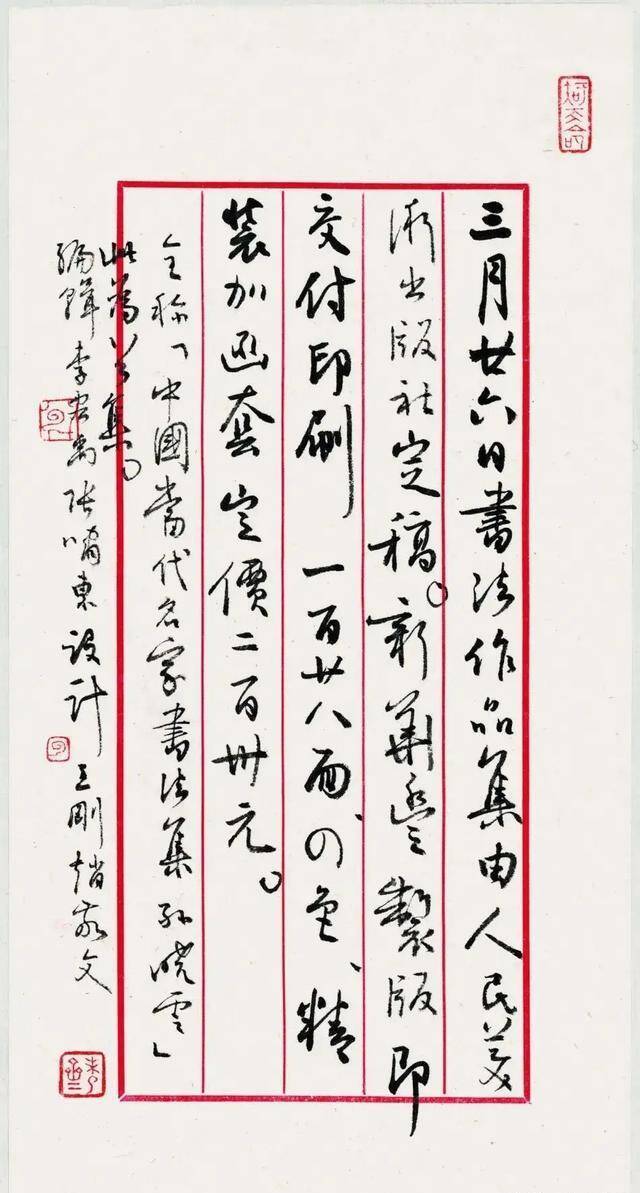 三月廿六日書法作品集由人民美
術出版社定稿。新製版即
交付印刷 一百廿八面、四色、精
裝加函套定價二百卅元。
全称「中國當代名家書法集孙晓雲」
此集。
編輯李张啸東設計王剛趙文